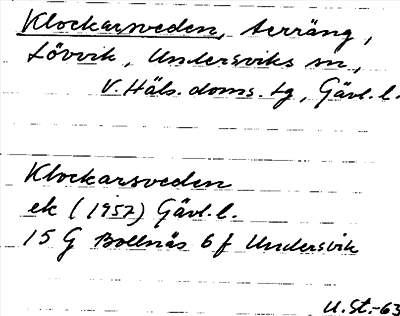 Klockarsveden, terräng,
Lövvik, Undersviks sn,
V. Häls. doms. tg, Gävl. l.
Klockarsveden
ek (1957) Gävl. l.
15 G Bollnäs 6 f Undersvik
U.St.-63